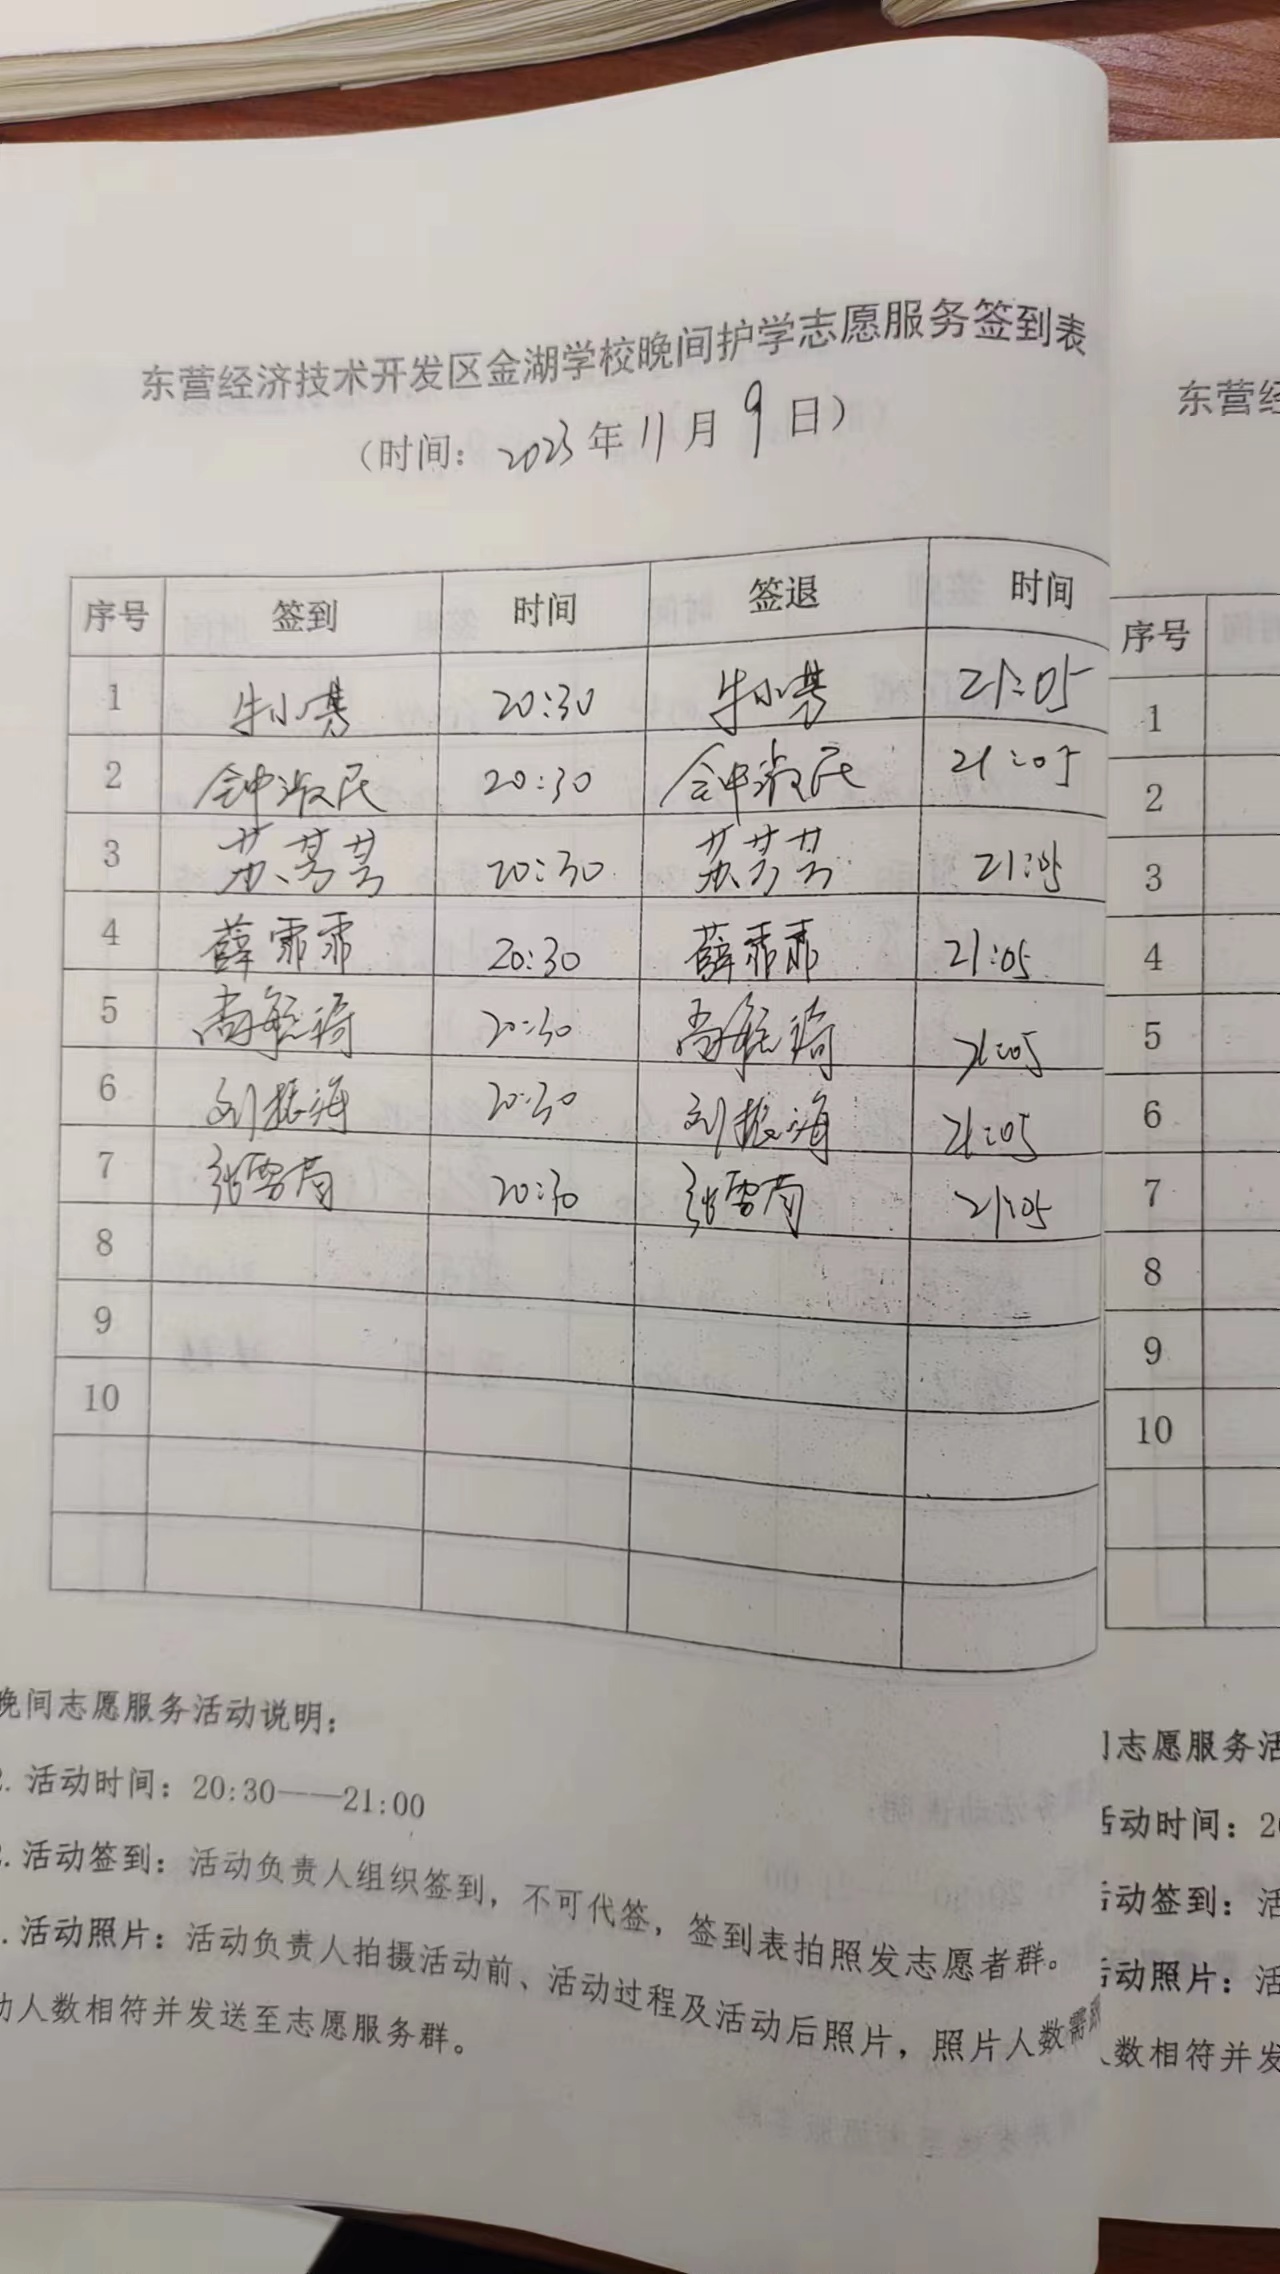 东营经济技术开发区金湖学校晚间护学志愿服务签到表
(时间: 2023年11月9日)
序号 签到 时间 签退 时间
1 牛小男 20:30 牛小男 21:05
2 钟淑民 20:30 钟淑民 21:05
3 苏芳芳 20:30 苏芳芳 21:05
4 薛霏霏 20:30 薛霏霏 21:05
5 尚毓琦 20:30 尚毓琦 21:05
6 刘振海 20:30 刘振海 21:05
7 张雪菊 20:30 张雪菊 21:05
8
9
10
晚间志愿服务活动说明:
2. 活动时间: 20:30——21:00
2. 活动签到: 活动负责人组织签到, 不可代签, 签到表拍照发志愿者群。
. 活动照片: 活动负责人拍摄活动前、活动过程及活动后照片, 照片人数需
动人数相符并发送至志愿服务群。
东营经
序号
1
2
3
4
5
6
7
8
9
10
志愿服务活
活动时间: 20
活动签到: 活
活动照片: 活
人数相符并发